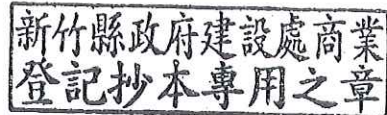 新竹縣政府建設處商業
登記抄本專用之章